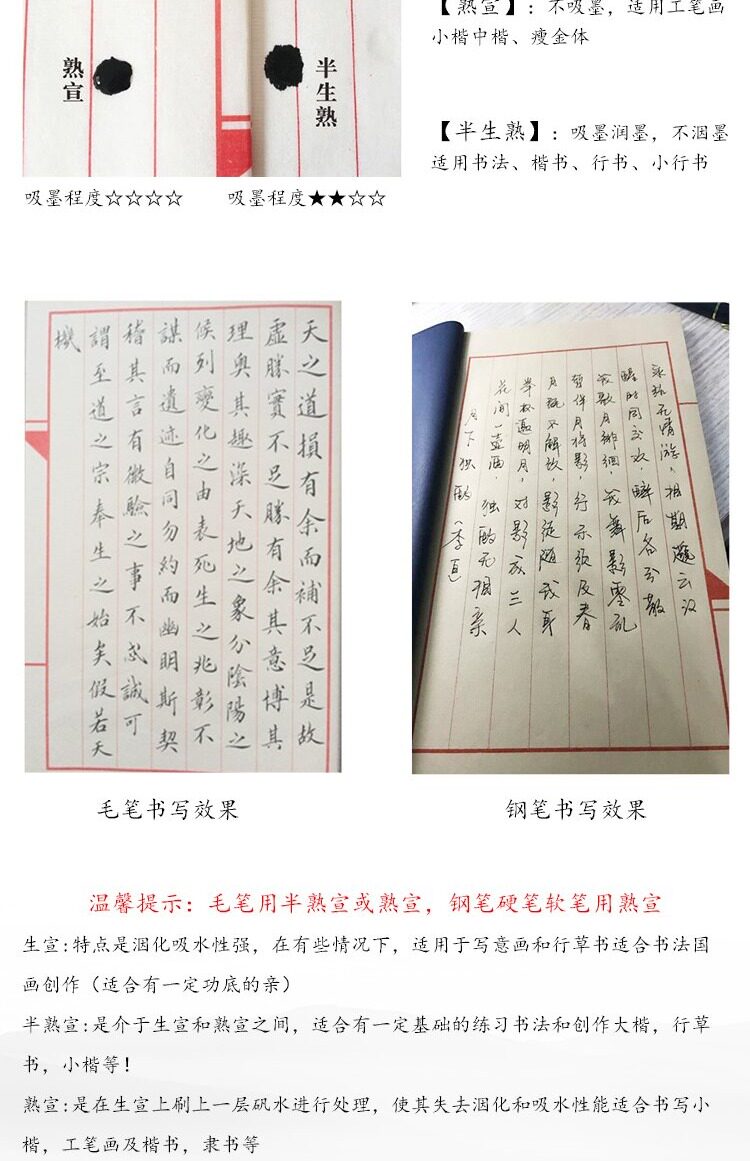 熟宣
半生熟
吸墨程度☆☆☆☆
吸墨程度★★☆☆
【熟宣】:不吸墨,适用工笔画
小楷中楷、瘦金体
【半生熟】:吸墨润墨,不洇墨
适用书法、楷书、行书、小行书
天之道損有余而補不足是故
虛勝實不足勝有余其意博其
理奥其趣深天地之象分陰陽之
候列變化之由表死生之兆彰不
謀而遺迹自同勿約而幽明斯契
稽其言有微驗之事不忒誠可
謂至道之宗奉生之始矣假若天
機
毛笔书写效果
月下独酌(李白)
花间一壶酒,独酌无相亲
举杯邀明月,对影成三人
月既不解饮,影徒随我身
暂伴月将影,行乐须及春
我歌月徘徊 我舞影零乱
醒时同交欢,醉后各分散
永结无情游,相期邈云汉
钢笔书写效果
温馨提示:毛笔用半熟宣或熟宣,钢笔硬笔软笔用熟宣
生宣:特点是洇化吸水性强,在有些情况下,适用于写意画和行草书适合书法国
画创作(适合有一定功底的亲)
半熟宣:是介于生宣和熟宣之间,适合有一定基础的练习书法和创作大楷,行草
书,小楷等!
熟宣:是在生宣上刷上一层矾水进行处理,使其失去洇化和吸水性能适合书写小
楷,工笔画及楷书,隶书等